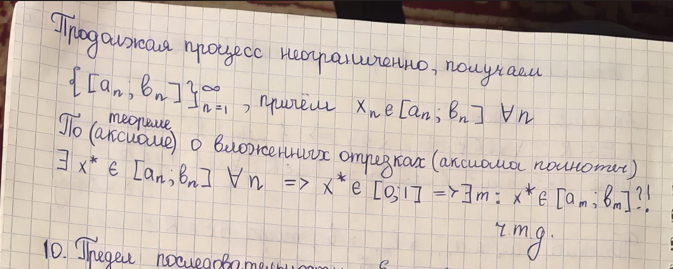 Продолжая процесс неограниченно, получаем
{[aₙ; вₙ]}ₙ₌₁^∞, причём xₙ∈[aₙ; вₙ] ∀n
теореме
По (аксиоме) о вложенных отрезках (аксиома полноты)
∃ x* ∈ [aₙ; вₙ] ∀n => x* ∈ [0;1] => ∃m: x* ∈ [aₘ; вₘ]?!
ч.т.д.
10. Предел последовательности